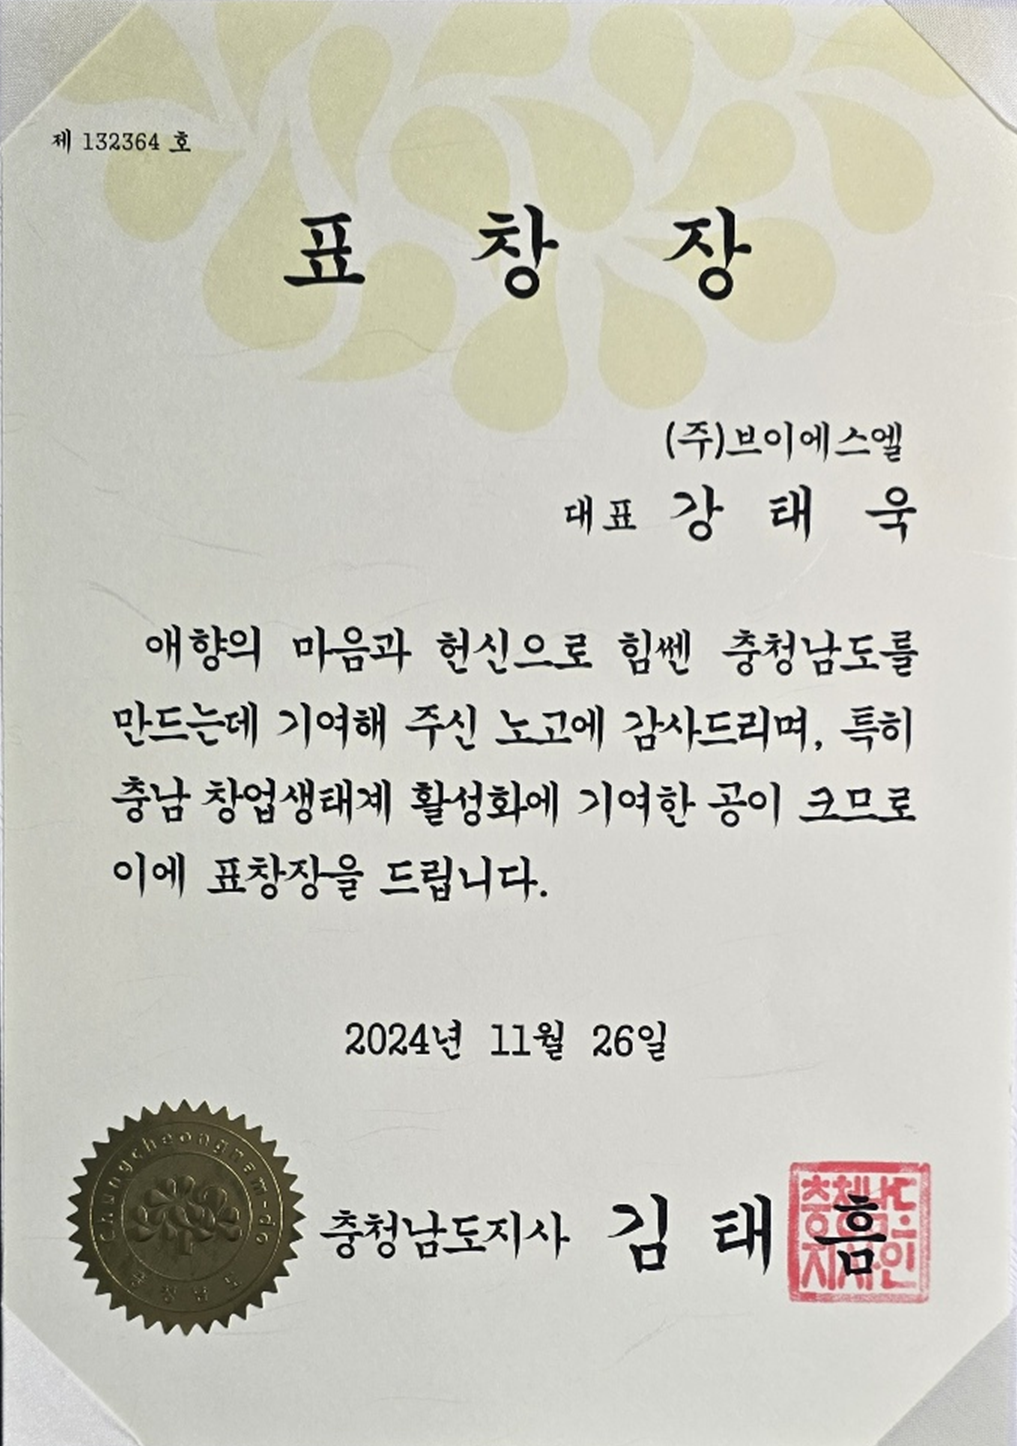 제 132364 호
표 창 장
(주)브이에스엘
대표 강 태 욱
애향의 마음과 헌신으로 힘쎈 충청남도를
만드는데 기여해 주신 노고에 감사드리며, 특히
충남 창업생태계 활성화에 기여한 공이 크므로
이에 표창장을 드립니다.
2024년 11월 26일
Chungcheongnam-do
충청남도
충청남도지사 김 태 흠
충청남도
지사인